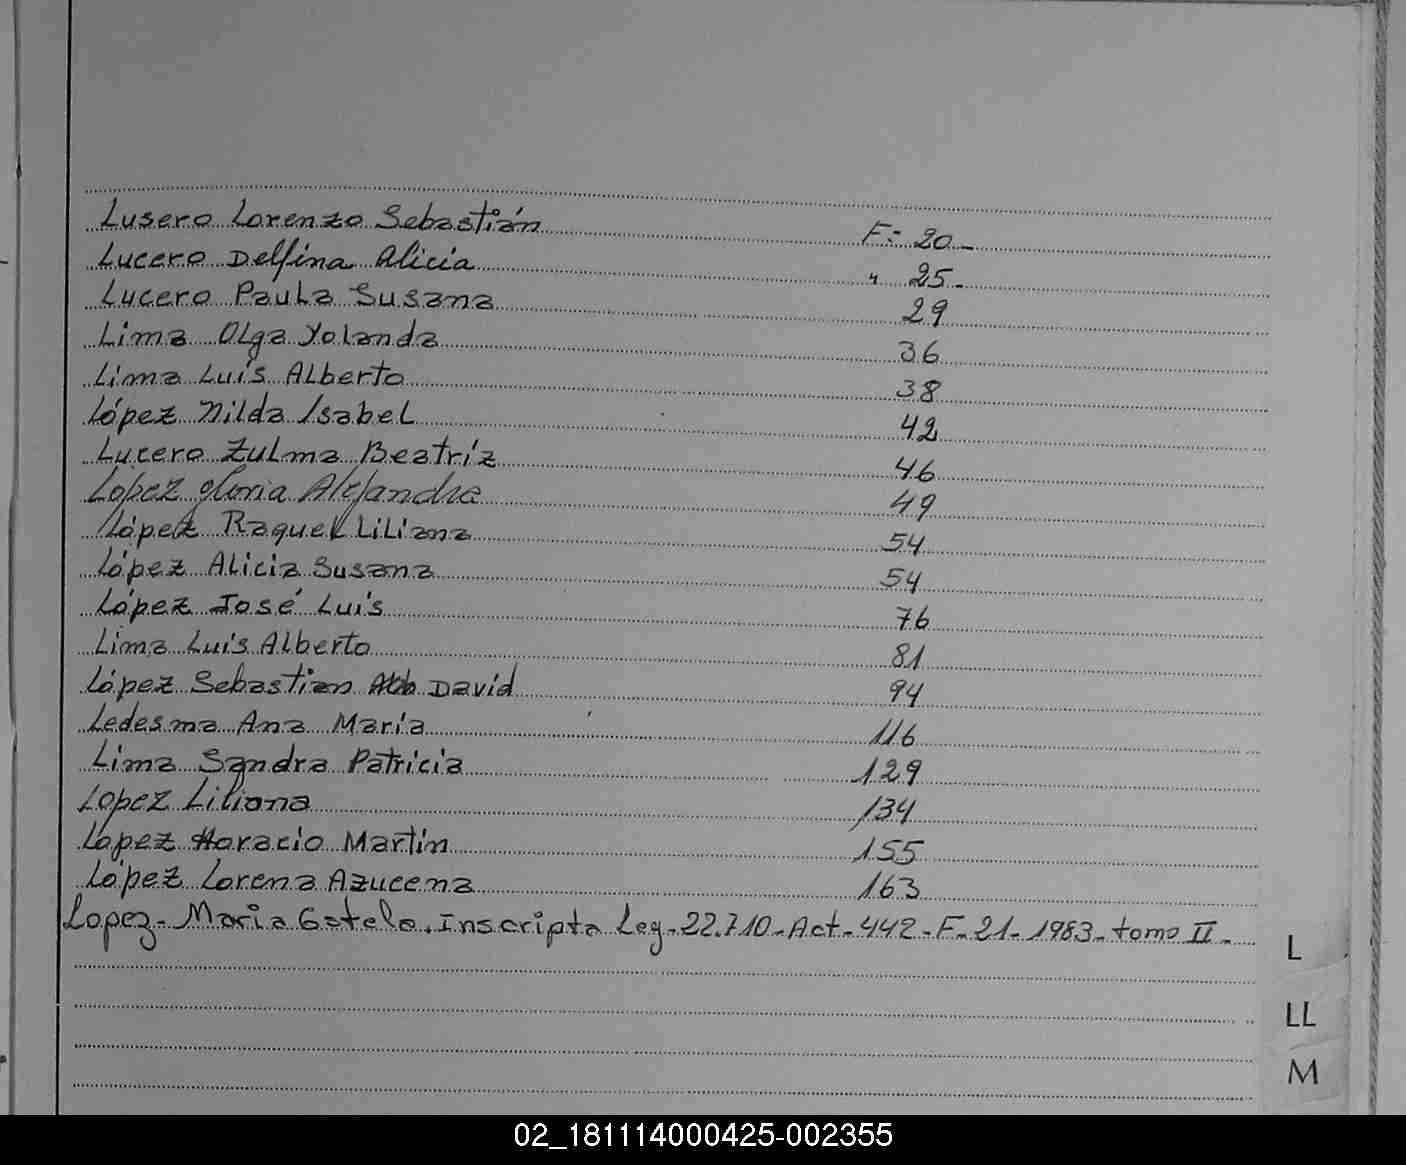 Lusero Lorenzo Sebastián F: 20-
Lucero Delfina Alicia " 25-
Lucero Paula Susana 29
Lima Olga Yolanda 36
Lima Luis Alberto 38
López Nilda Isabel 42
Lucero Zulma Beatríz 46
López Gloria Alejandra 49
López Raquel Liliana 54
López Alicia Susana 54
López José Luis 76
Lima Luis Alberto 81
López Sebastian David 94
Ledesma Ana María 116
Lima Sandra Patricia 129
Lopez Liliana 134
López Horacio Martín 155
López Lorena Azucena 163
Lopez- Maria Estela. Inscripta Leg-22.710-Act-442-F-21-1983-tomo II-
L
LL
M
02_181114000425-002355